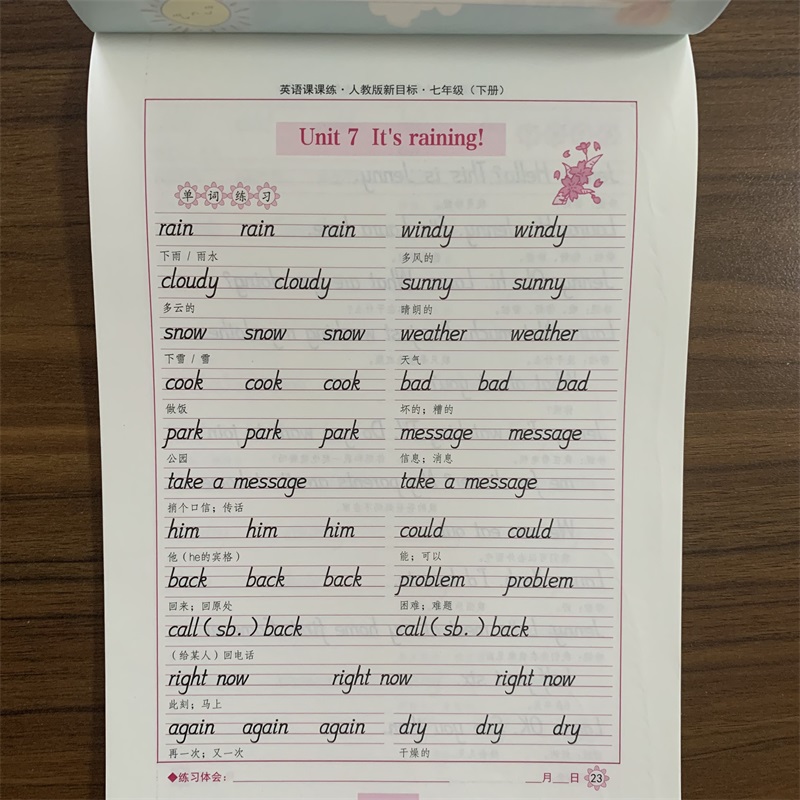 英语课课练·人教版新目标·七年级（下册）
Unit 7 It's raining!
单词练习
rain rain rain windy windy
下雨 / 雨水 多风的
cloudy cloudy sunny sunny
多云的 晴朗的
snow snow snow weather weather
下雪 / 雪 天气
cook cook cook bad bad bad
做饭 坏的；糟的
park park park message message
公园 信息；消息
take a message take a message
捎个口信；传话
him him him could could
他（he的宾格） 能；可以
back back back problem problem
回来；回原处 困难；难题
call ( sb. ) back call ( sb. ) back
（给某人）回电话
right now right now right now
此刻；马上
again again again dry dry dry
再一次；又一次 干燥的
◆练习体会：
月 日 23